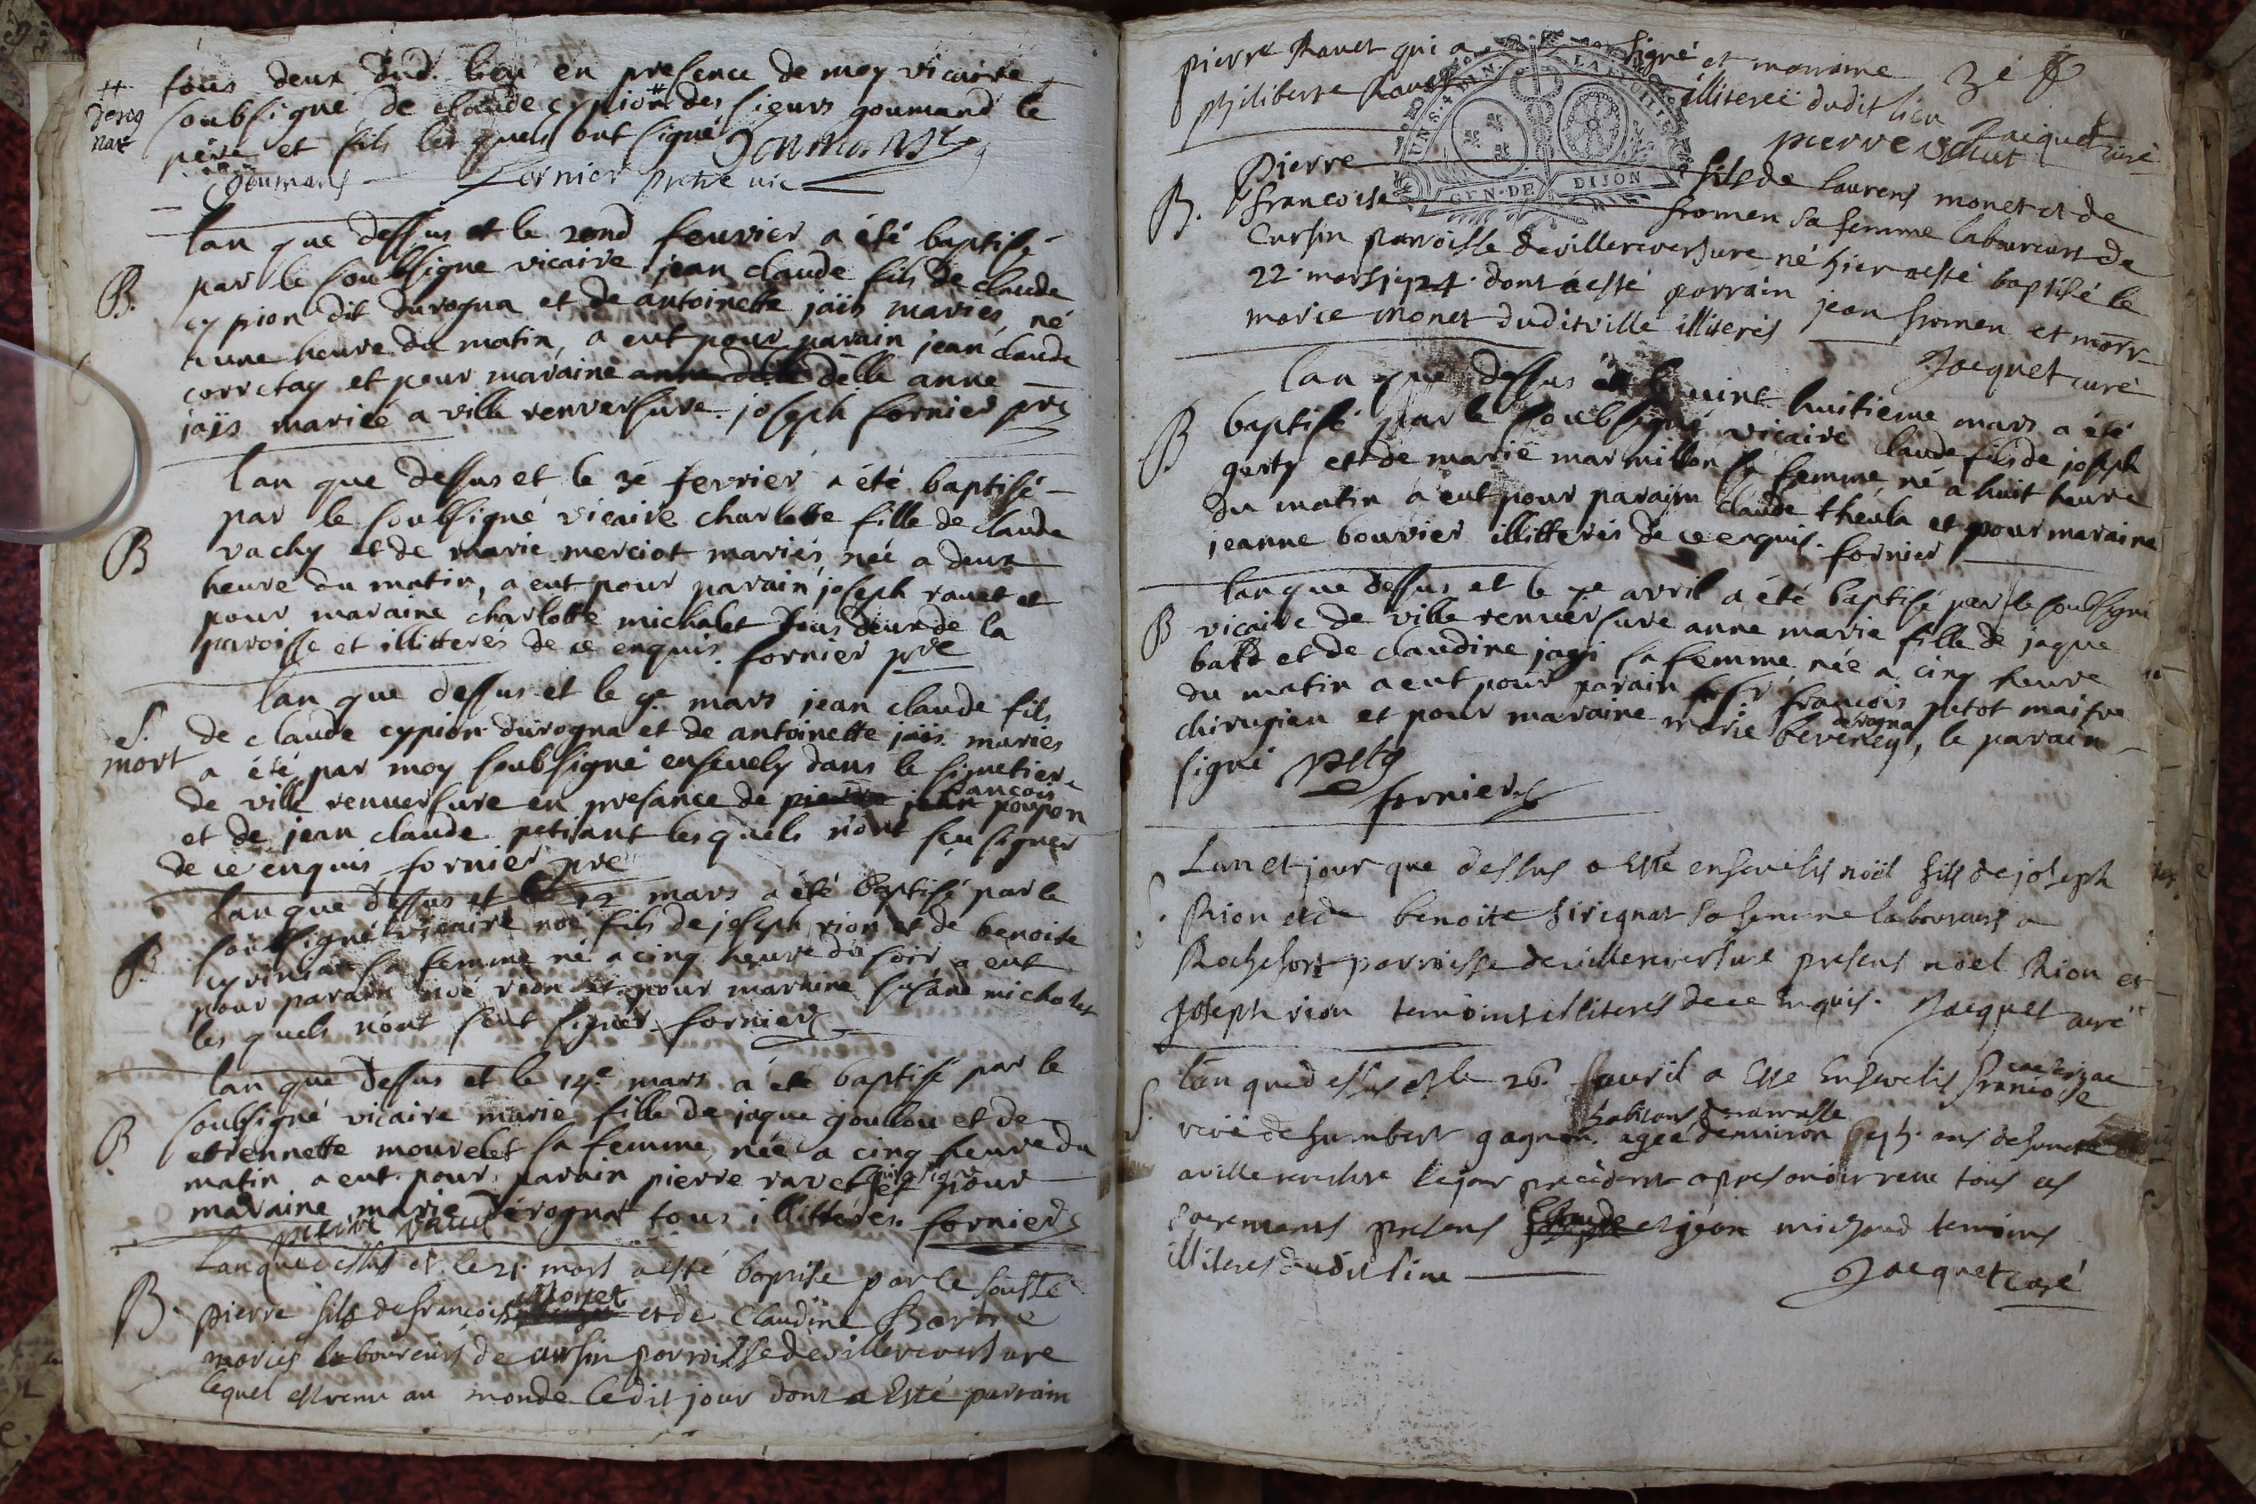 tous deux dud. lieu en presence de moy vicaire
soubsigné de claude cypion des sieurs goumand le
pere et fils lesquels ont signé Goumand
Goumand fornier pretre vic
lan que dessus et le 2ond feuvier a été baptisé
B. par le soubsigne vicaire jean claude fils de claude
cypion dit durogna et de antoinette jaïs mariés né
a une heure du matin, a eut pour parain jean claude
corretay et pour maraine delle anne
jaÿs mariée a ville renversure joseph fornier pre
lan que dessus et le 3e fevrier a été baptisé
B par le soubsigné vicaire charlotte fille de claude
vachy et de marie merciot mariés, née a deux
heure du matin, a eut pour parain joseph ravet et
pour maraine charlotte michalet tous deux de la
paroisse et illitteres de ce enquis. fornier pre
lan que dessus et le 9e mars jean claude fils
S. de claude cypion durogna et de antoinette jaïs mariés
mort a été par moy soubsigné ensevely dans le simetiere
de ville renversure en presance de pierre jean francois poupon
et de jean claude petitant lesquels n'ont seu signer
de ce enquis fornier pre
lan que dessus et le 12 mars a été baptisé par le
B soubsigné vicaire noé fils de joseph rion et de benoite
cyrinias sa femme né a cinq heure du soir a eut
pour parain noé rion et pour maraine susane micholet
les quels n'ont seut signer fornier
lan que dessus et le 14e mars a été baptisé par le
B. soubsigné vicaire marie fille de jaque goullou et de
etiennette mourelet sa femme née a cinq heure du
matin a eut pour parain pierre ravet et pour
maraine marie derogna tous illitterés. fornier
pierre ravet
Lan que dessus et le 21 mars a esté baptise par le soussé
B. pierre fils de francois Monet et de Claudine
mariés laboureurs de cursin parroisse de villereversure
lequel est venu au monde ledit jour dont a esté parrain
pierre Ravet qui a signé et marraine
philiberte Ravet illiteréé dudit lieu
pierre ravet Jacquet curé
B. Pierre fils de laurens monet et de
francoise fromen sa femme laboureurs de
Cursin parroisse de villereversure né hier a esté baptisé le
22 mars 1724 dont a esté parrain jean fromen et marr
marie monet dudit ville illiterés
Jacquet curé
lan que dessus et le vint huitieme mars a été
B baptisé par le soubsigné vicaire claude fils de joseph
gerty et de marie marmillon sa femme, né a huit heure
du matin a eut pour parain claude theula et pour maraine
jeanne bouvier illitterés de ce enquis. fornier
lan que dessus et le 7e avril a été baptisé par le soubsigné
B vicaire de ville renversure anne marie fille de jaque
et de claudine jaÿs sa femme, née a cinq heure
du matin a eut pour parain sr francois petot maitre
chirugien et pour maraine marie beverney derogna, le parain
signé
fornier
Lan et jour que dessus a esté ensevelis noël fils de joseph
Rion et de benoite sirignat sa femme laboureurs a
Rochefort parroisse de villereversure presens noel Rion et
Joseph rion temoins illiterés de ce enquis. Jacquet curé
lan que dessus et le 26 avril a esté ensevelis francoise
S. veve de humbert gagnon agée denviron ans defuncte
a villereversure le jour precedent apres avoir receu tous ces
sacremens presens Claude et jean michaud temoins
illiteres dudit lieu
Jacquet curé